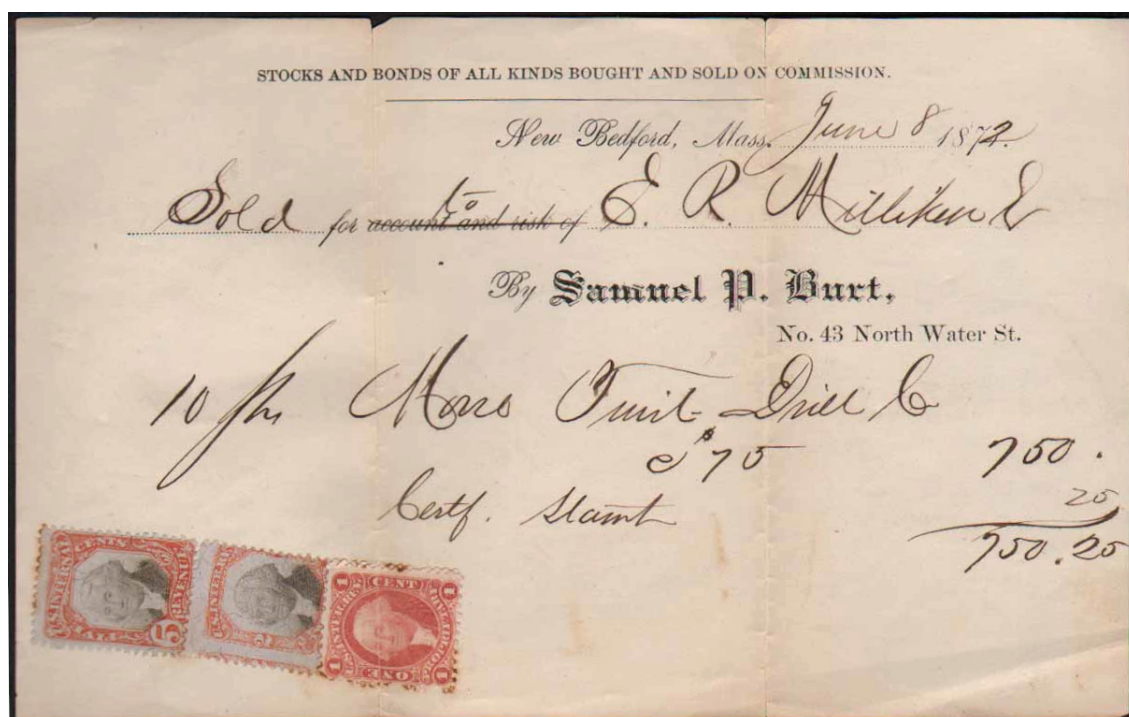 STOCKS AND BONDS OF ALL KINDS BOUGHT AND SOLD ON COMMISSION.
New Bedford, Mass. June 8 1872.
to
Sold for account and risk of E. R. Milliken
By Samuel P. Burt,
No. 43 North Water St.
10 shs Morse Twist Drill Co
@ $75 750.
Certf. Stamp 25
750.25
U.S. INTERNAL REVENUE
CENTS
5
U.S. INTER. REVENUE
2
1 CENT 1
U.S. INTER. REV.
1 ONE 1